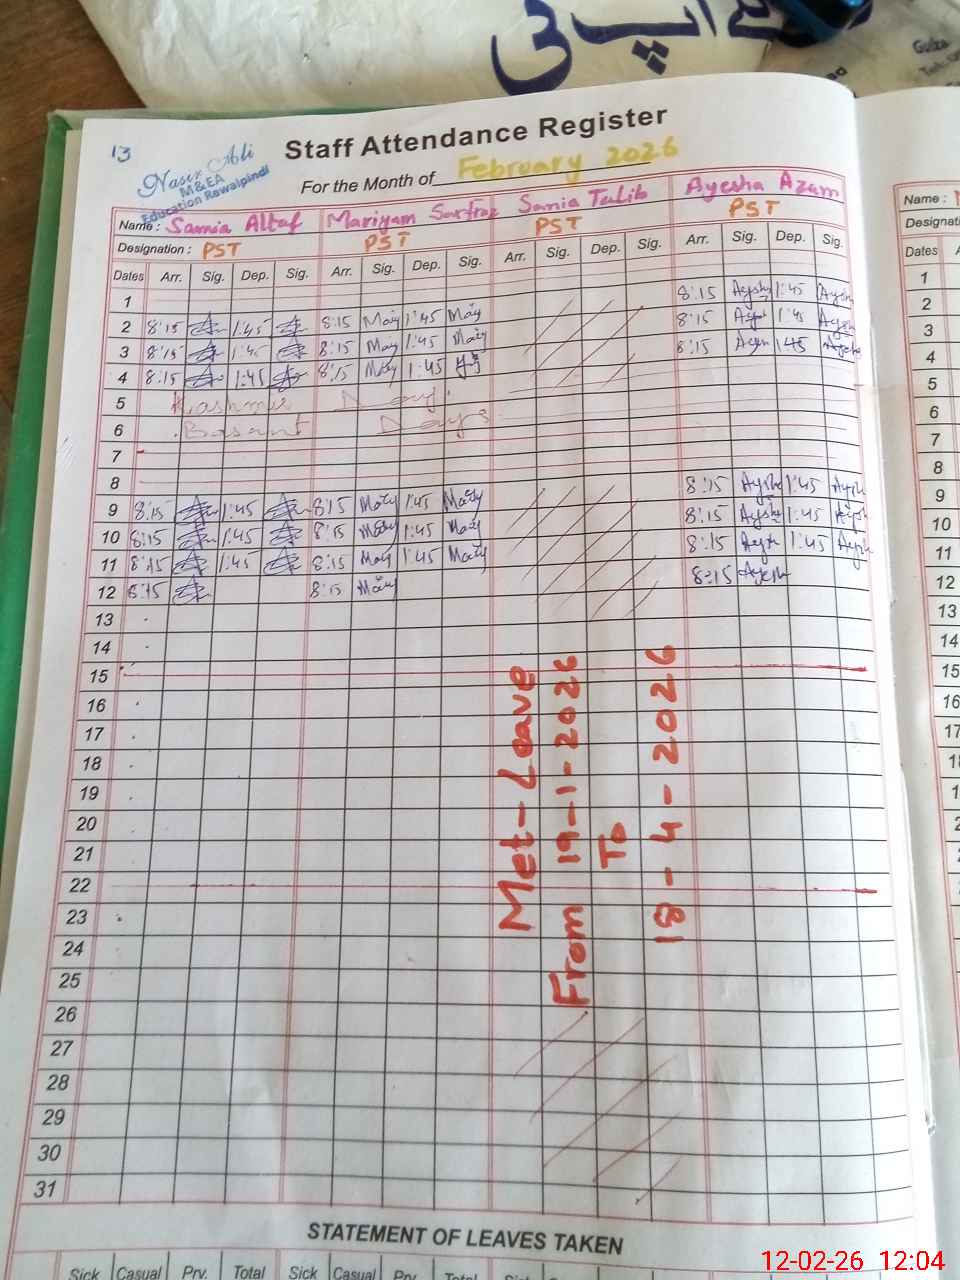 آپ کی
Staff Attendance Register
13
Nasir Ali
M&EA
Education Rawalpindi
For the Month of February 2026
Name: Samia Altaf Mariyam Sarfraz Samia Talib Ayesha Azam
Designation: PST PST PST PST
Dates Arr. Sig. Dep. Sig. Arr. Sig. Dep. Sig. Arr. Sig. Dep. Sig. Arr. Sig. Dep. Sig.
1
2 8:15 1:45 8:15 Mary 1:45 Mary 8:15 Aysha 1:45 Aysha
3 8:15 1:45 8:15 Mary 1:45 Mary 8:15 1:45
4 8:15 1:45 8:15 Mary 1:45 8:15 1:45
5 Kashmir Day
6 Basant Days
7
8
9 8:15 1:45 8:15 Mary 1:45 Mary 8:15 Aysha 1:45
10 8:15 1:45 8:15 Mary 1:45 Mary 8:15 Aysha 1:45
11 8:15 1:45 8:15 Mary 1:45 Mary 8:15 1:45
12 8:15 8:15 Mary 8:15 Aysha
13
14
15
16
17
18
19
20
21
22
23
24
25
26
27
28
29
30
31
Met-Leave
From 19-1-2026
To
18-4-2026
STATEMENT OF LEAVES TAKEN
Sick Casual Prv. Total Sick Casual Prv. Total Sick
Name:
Dates
1
2
3
4
5
6
7
8
9
10
11
12
13
14
15
16
17
12-02-26 12:04